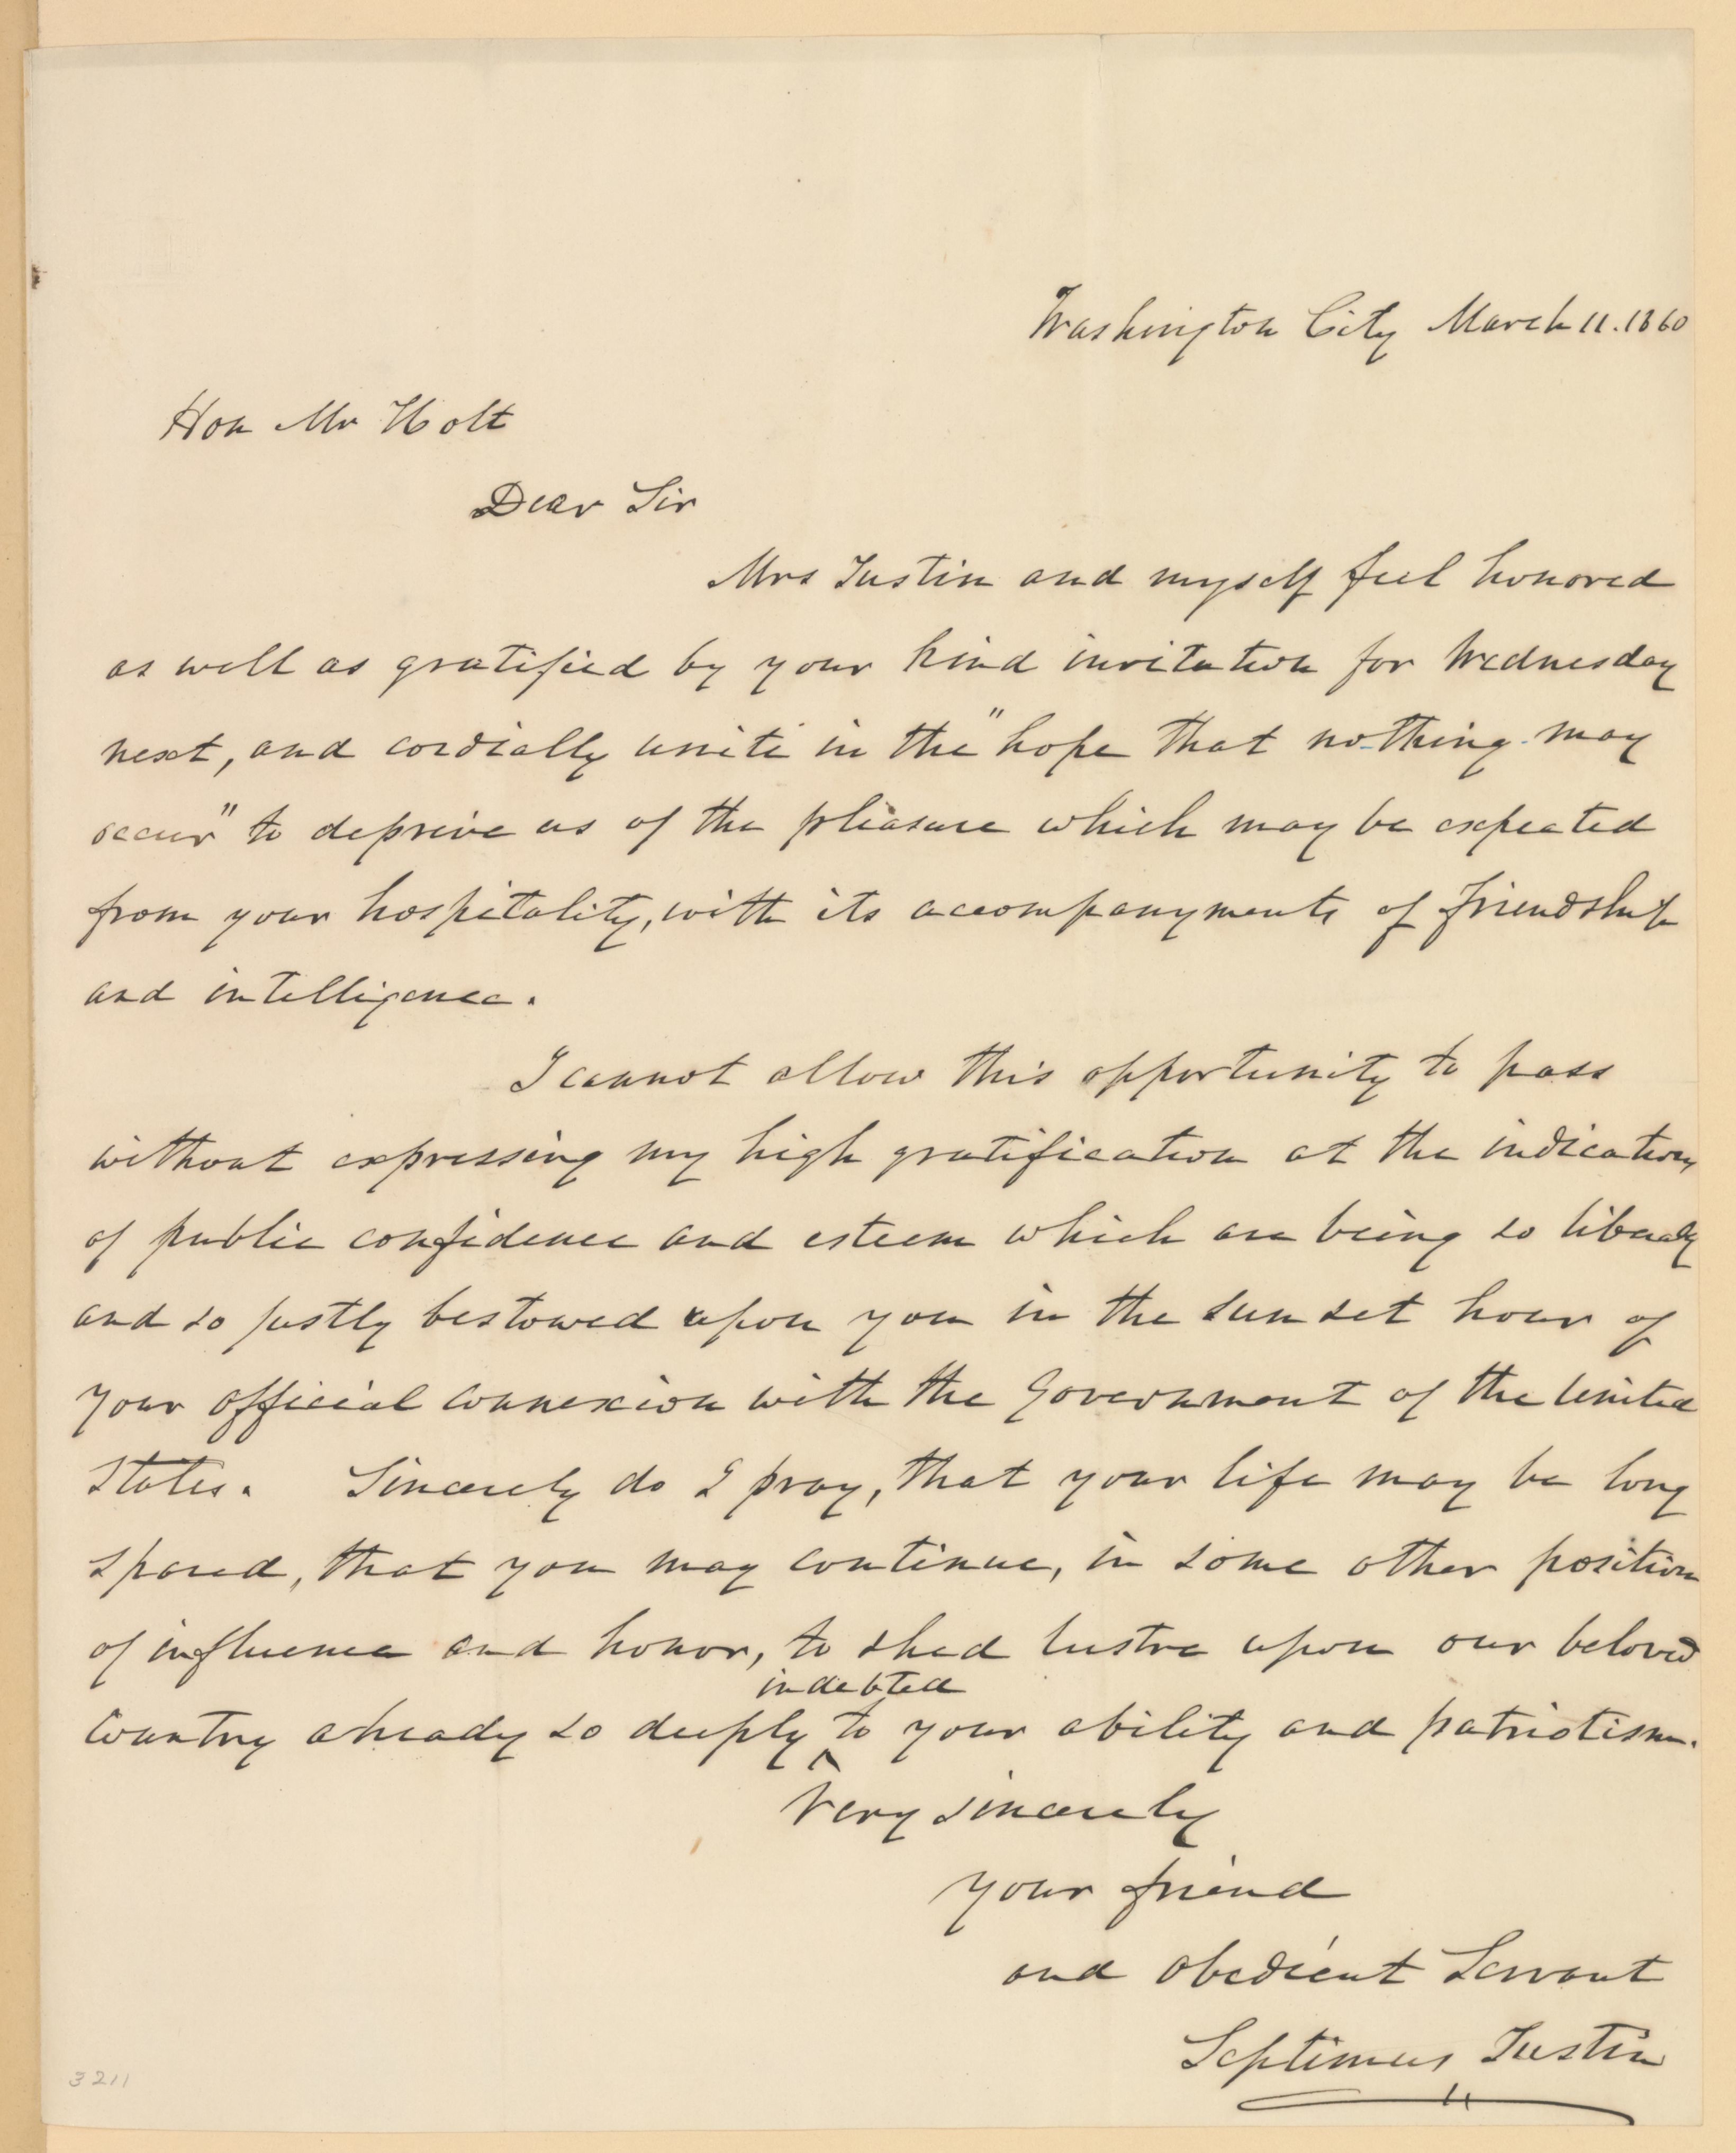 Washington City March 11. 1860
Hon Mr Holt
Dear Sir
Mrs Tustin and myself feel honored
as well as gratified by your kind invitation for Wednesday
next, and cordially unite in the "hope that nothing may
occur" to deprive us of the pleasure which may be expected
from your hospitality, with its accompanyments of friendship
and intelligence.
I cannot allow this opportunity to pass
without expressing my high gratification at the indications
of public confidence and esteem which are being so liberally
and so justly bestowed upon you in the sun set hour of
your official connexion with the Government of the United
States. Sincerely do I pray, that your life may be long
spared, that you may continue, in some other position
of influence and honor, to shed lustre upon our beloved
indebted
Country already so deeply ^ to your ability and patriotism.
Very sincerely
your friend
and obedient Servant
Septimus Tustin
3211